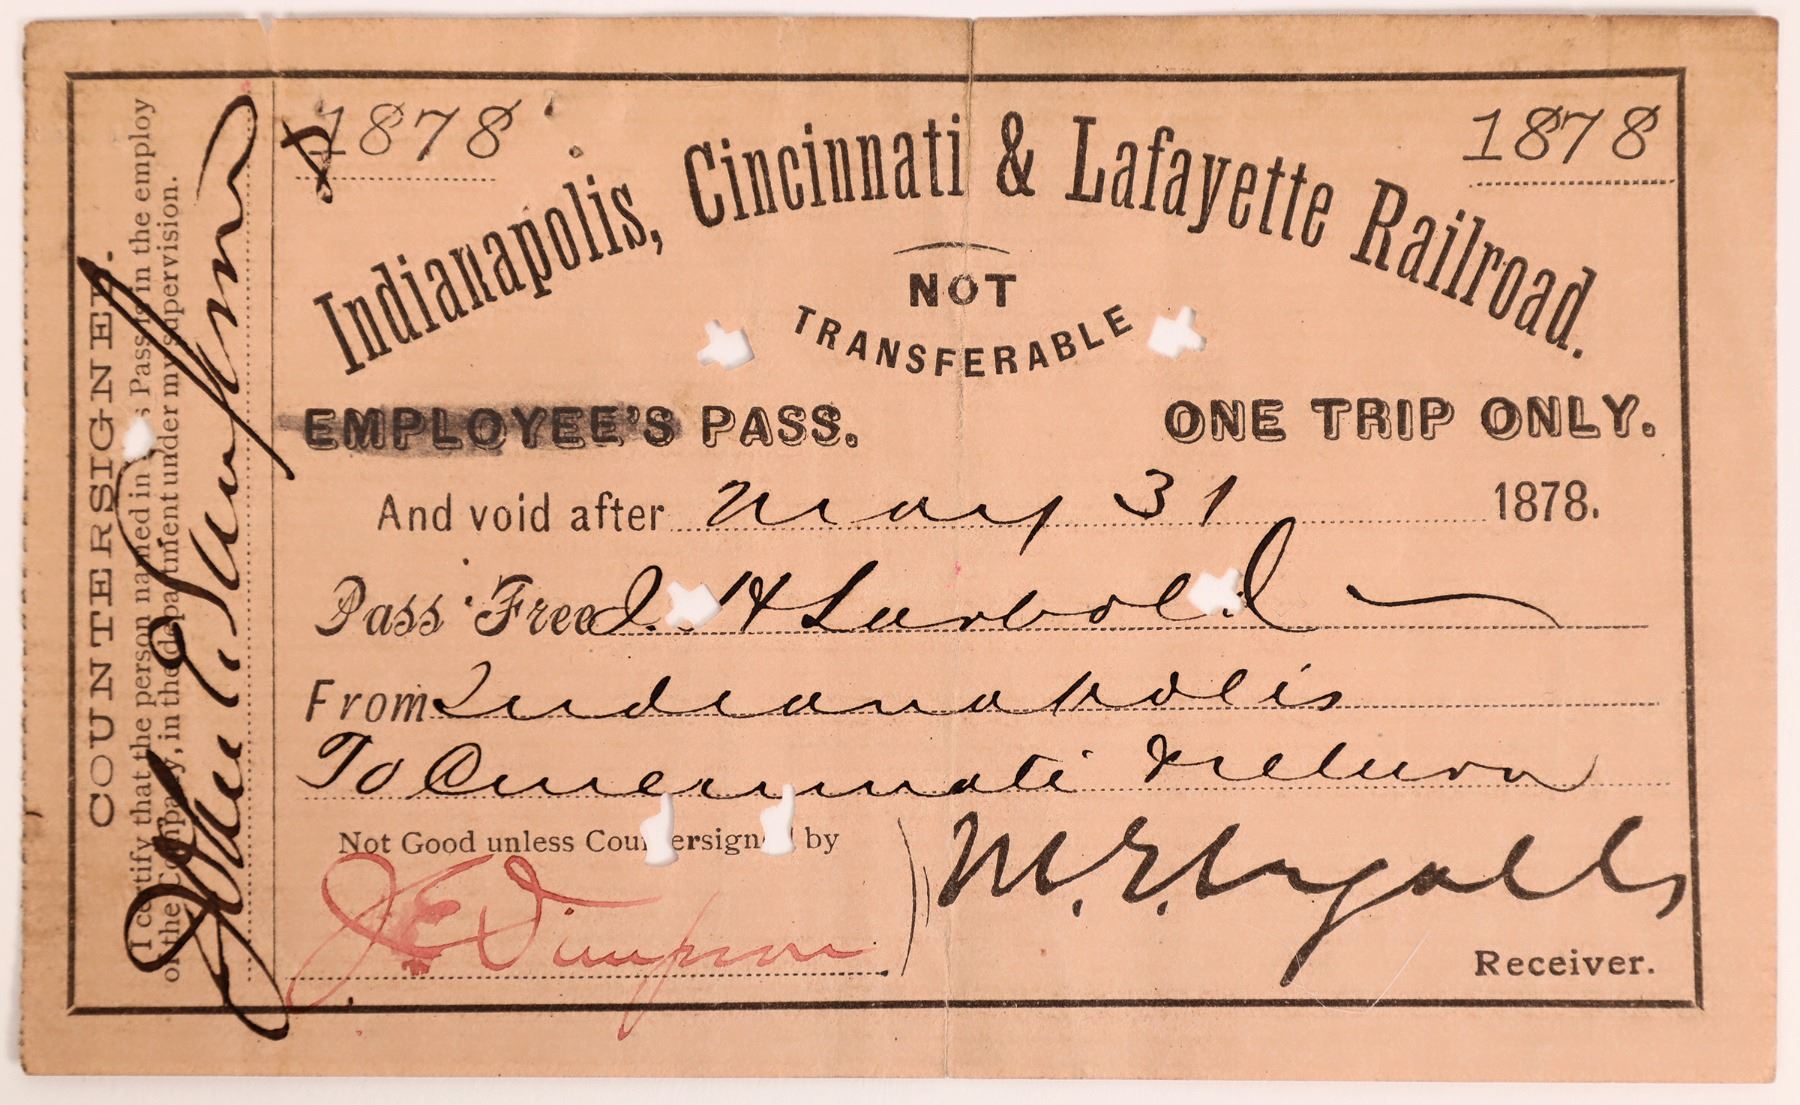 COUNTERSIGNED.
I certify that the person named in this Pass is in the employ
of the Company, in the department under my supervision.
1878
1878
Indianapolis, Cincinnati & Lafayette Railroad.
NOT
TRANSFERABLE
EMPLOYEE'S PASS. ONE TRIP ONLY.
And void after May 31 1878.
Pass Free J. H Larbold
From Indianapolis
To Cincinnati & return
Not Good unless Countersigned by
J E Simpson
M. E. Ingalls
Receiver.